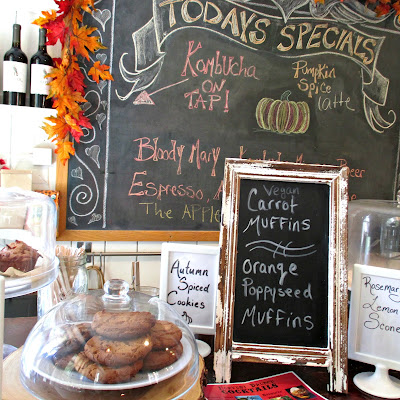 TODAYS SPECIALS
Kombucha
ON
TAP!
Pumpkin
Spice
Latte
Bloody Mary
Beer
Espresso,
The Apple
Vegan
Carrot
Muffins
Orange
Poppyseed
Muffins
Autumn
Spiced
Cookies
Rosemary
Lemon
Scone
COCKTAILS